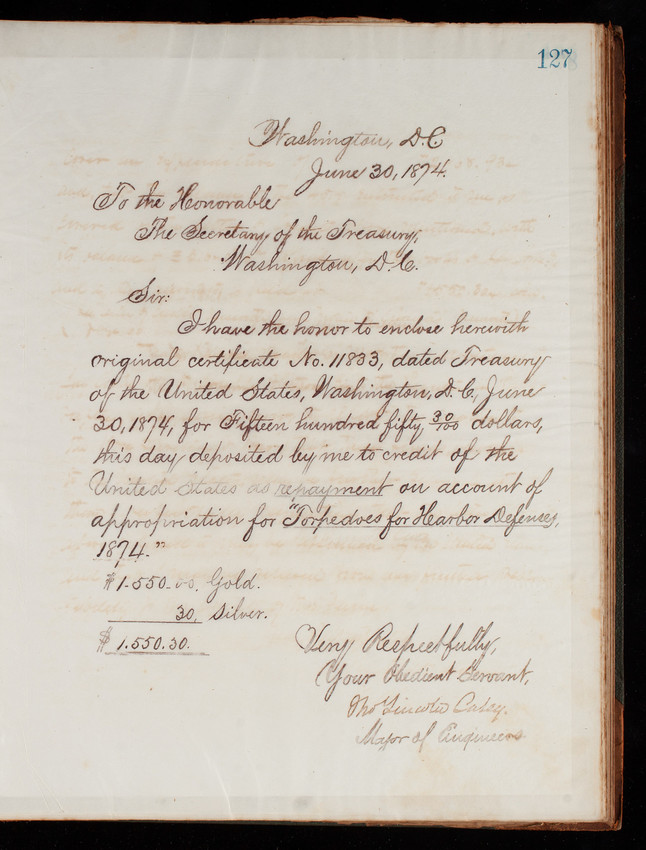 127
Washington, D.C
June 30, 1874.
To the Honorable
The Secretary of the Treasury,
Washington, D.C.
Sir:
I have the honor to enclose herewith
original certificate No. 11833, dated Treasury
of the United States, Washington, D.C., June
30, 1874, for Fifteen hundred fifty 30/100 dollars,
this day deposited by me to credit of the
United States as repayment on account of
appropriation for "Torpedoes for Hearbor Defenses,
1874."
$1.550.00. Gold.
30, Silver.
$1.550.30.
Very Respectfully,
Your Obedient Servant,
Thos Lincoln Casey.
Major of Engineers